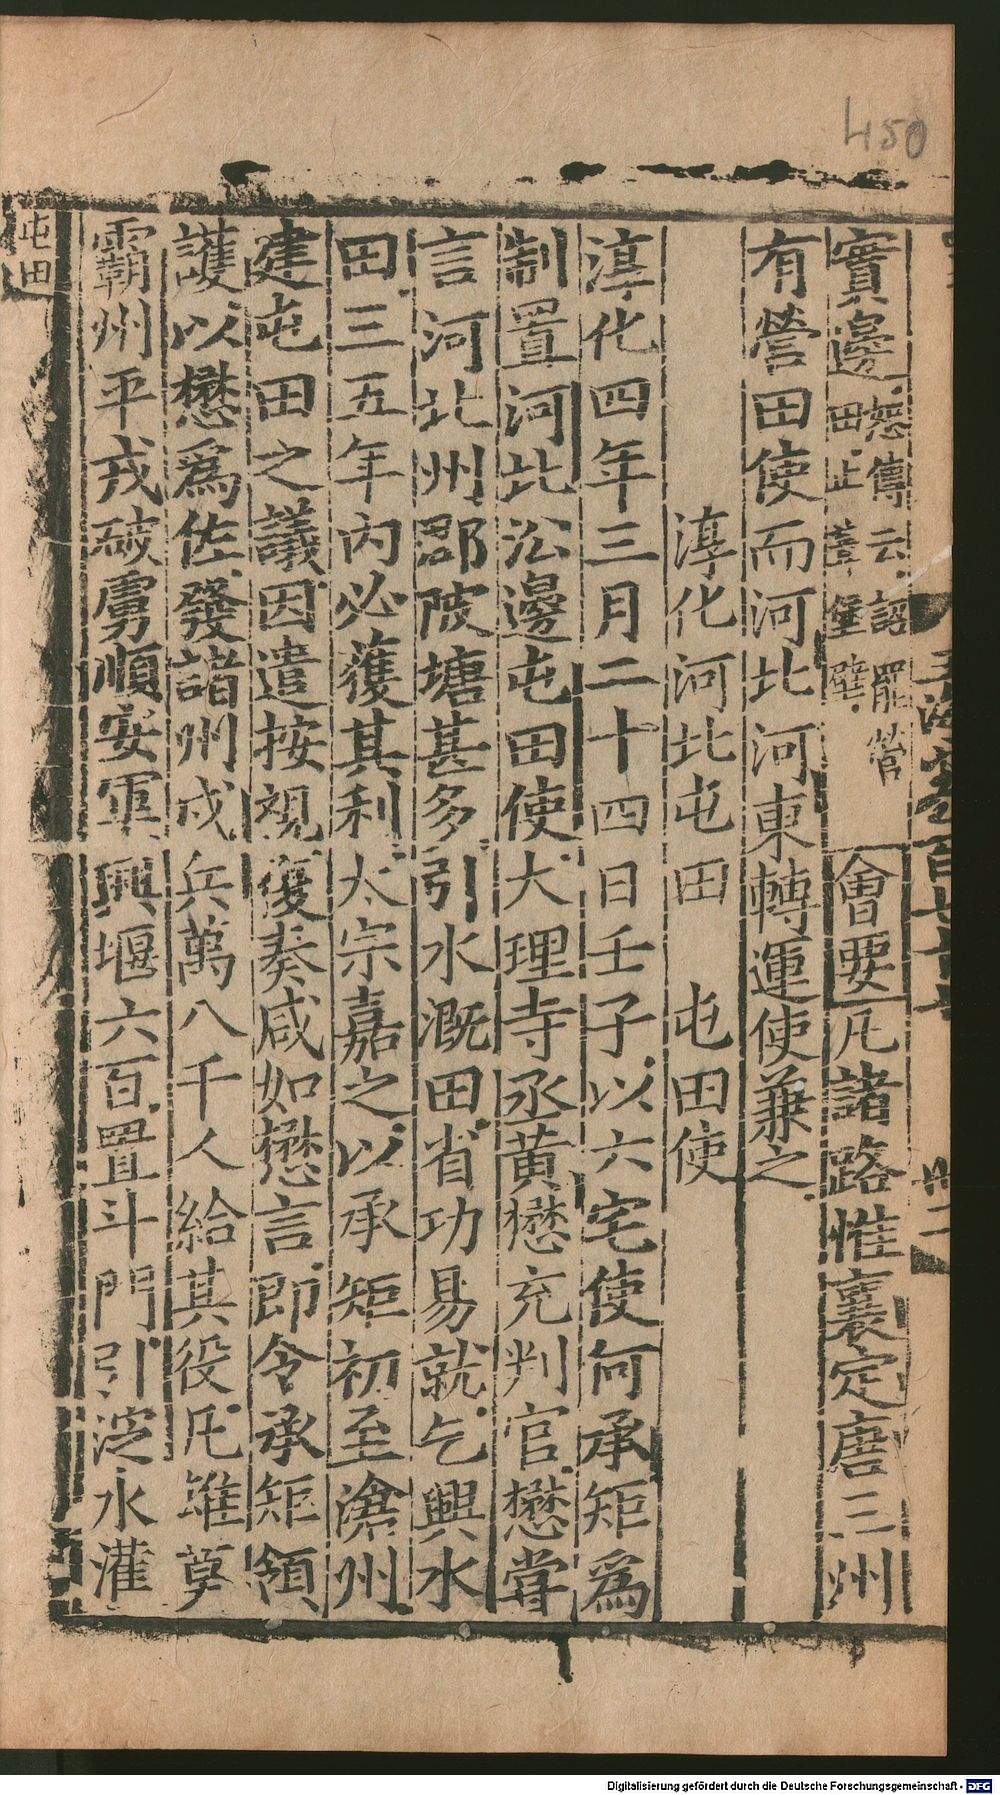 450
實邊恕傳云詔罷營田止葺堡壁會要凡諸路惟襄定唐三州
有營田使而河北河東轉運使兼之
淳化河北屯田 屯田使
淳化四年三月二十四日壬子以六宅使何承矩爲
制置河北沿邊屯田使大理寺丞黃懋充判官懋嘗
言河北州郡陂塘甚多引水溉田省功易就乞興水
田三五年內必獲其利太宗嘉之以承矩初至滄州
建屯田之議因遣按視復奏咸如懋言即令承矩領
護以懋爲佐發諸州戍兵萬八千人給其役凡雄莫
霸州平戎破虜順安軍興堰六百置斗門引淀水灌
屯田
Digitalisierung gefördert durch die Deutsche Forschungsgemeinschaft - DFG